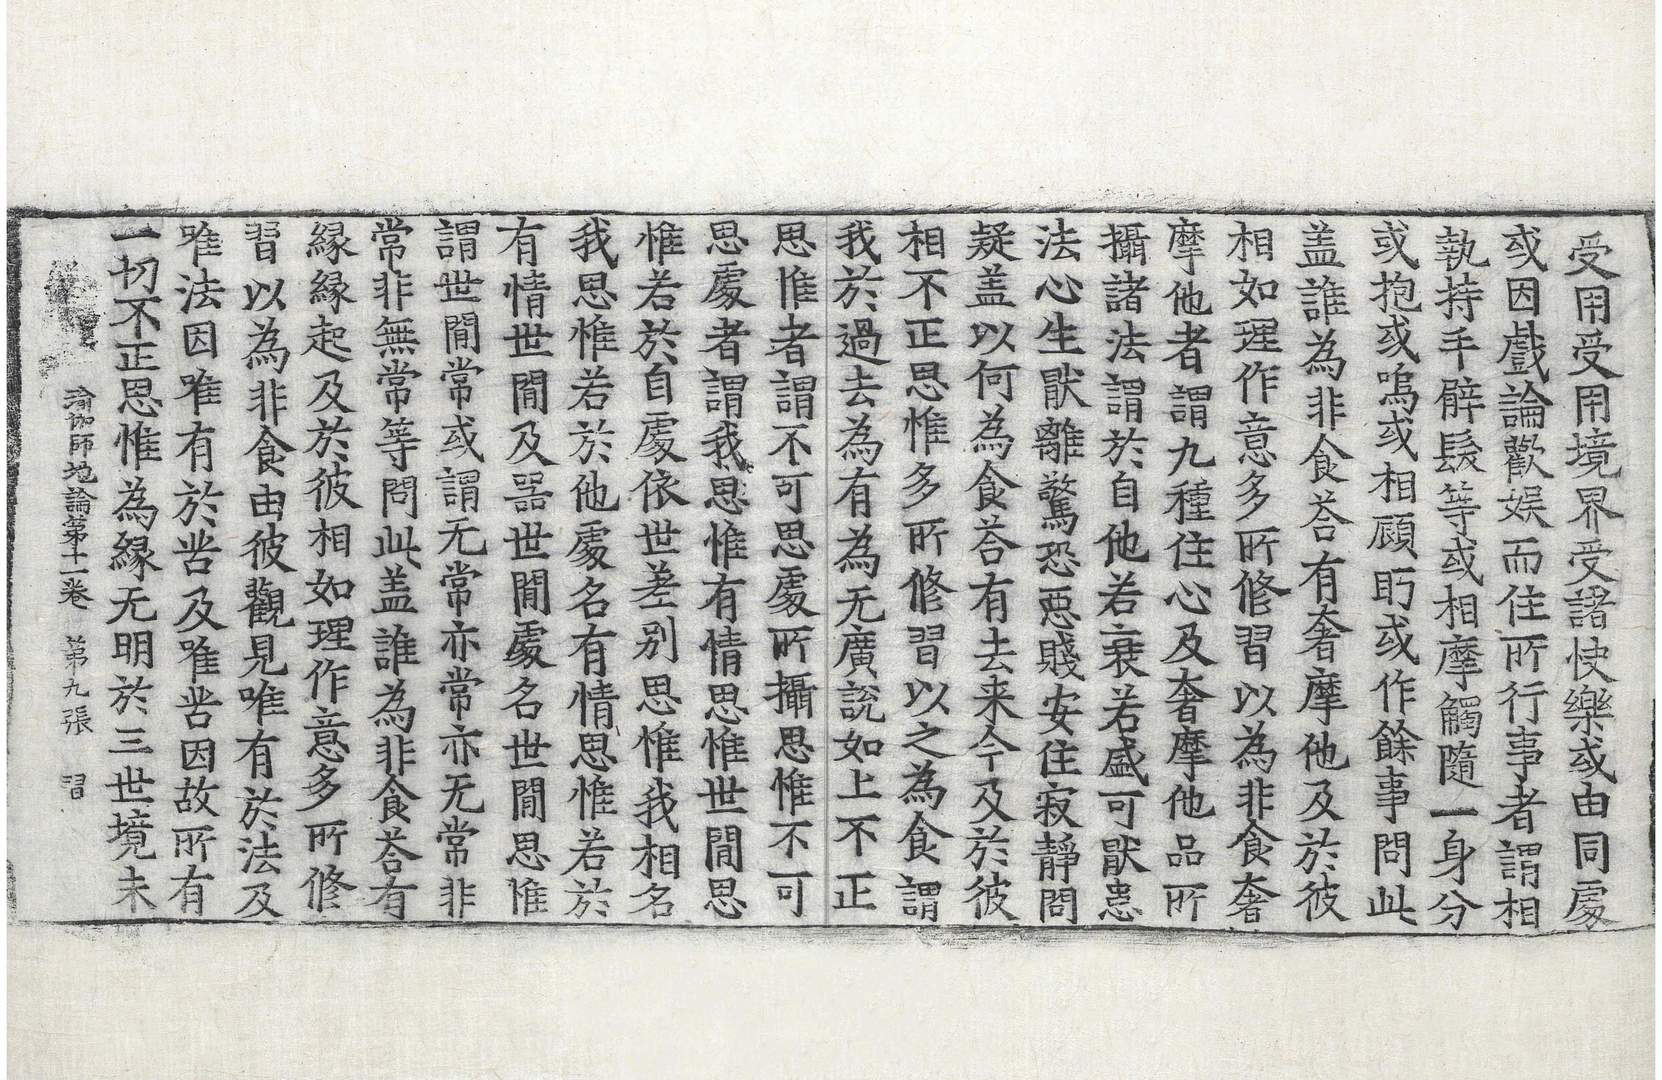 受用受用境界受諸快樂或由同處
或因戲論歡娛而住所行事者謂相
執持手臂髮等或相摩觸隨一身分
或抱或嗚或相顧眄或作餘事問此
盖誰為非食荅有奢摩他及於彼
相如理作意多所修習以為非食奢
摩他者謂九種住心及奢摩他品所
攝諸法謂於自他若衰若盛可猒患
法心生猒離驚恐惡賤安住寂靜問
疑盖以何為食荅有去来今及於彼
相不正思惟多所修習以之為食謂
我於過去為有為无廣說如上不正
思惟者謂不可思處所攝思惟不可
思處者謂我思惟有情思惟世間思
惟若於自處依世差別思惟我相名
我思惟若於他處名有情思惟若於
有情世間及器世間處名世間思惟
謂世間常或謂无常亦常亦无常非
常非無常等問此盖誰為非食荅有
緣緣起及於彼相如理作意多所修
習以為非食由彼觀見唯有於法及
唯法因唯有於苦及唯苦因故所有
一切不正思惟為緣无明於三世境未
瑜伽師地論第十一卷 第九張 習